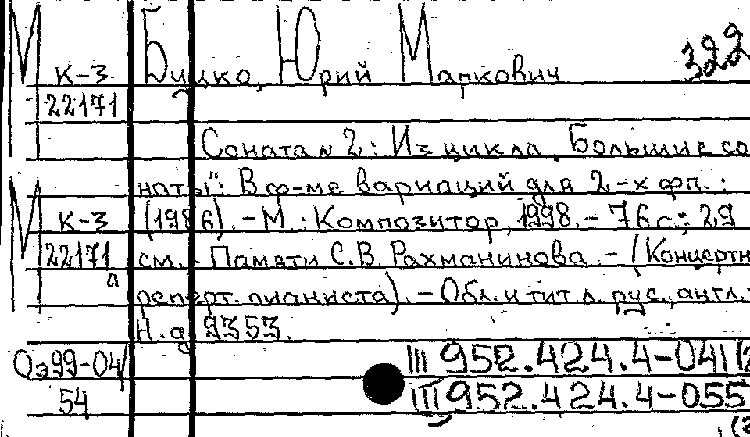 М Буцко, Юрий Маркович 322
К-3
22171
Соната № 2: Из цикла „Большие со
наты": В ф-ме вариаций для 2-х фп.:
М К-3 (1986). - М.: Композитор, 1998. - 76 с.; 29
22171 см. - Памяти С.В. Рахманинова. - (Концертн
л реперт. пианиста). - Обл. и тит. л. рус., англ.:
Н. д 9353.
Оэ99-04/ III 952.424.4-041(2
54 III 952.424.4-055